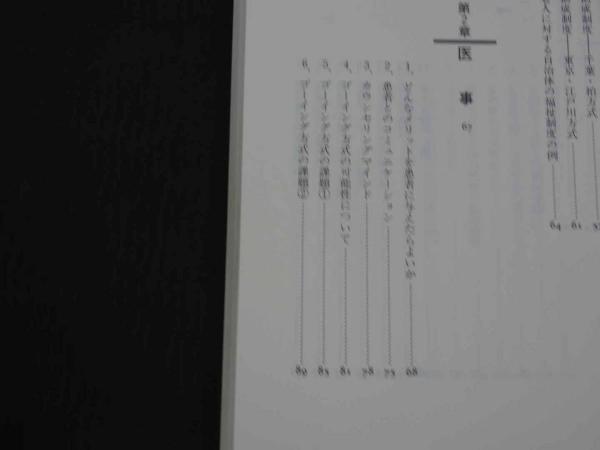 助成制度――千葉・柏方式
助成制度――東京・江戸川方式 61
人に対する自治体の福祉制度の例 64
第2章 医事 67
1、どんなメリットを患者に与えたらよいか 68
2、患者とのコミュニケーション 73
3、カウンセリングマインド 78
4、ゴーイング方式の可能性について 81
5、ゴーイング方式の課題① 85
6、ゴーイング方式の課題② 89